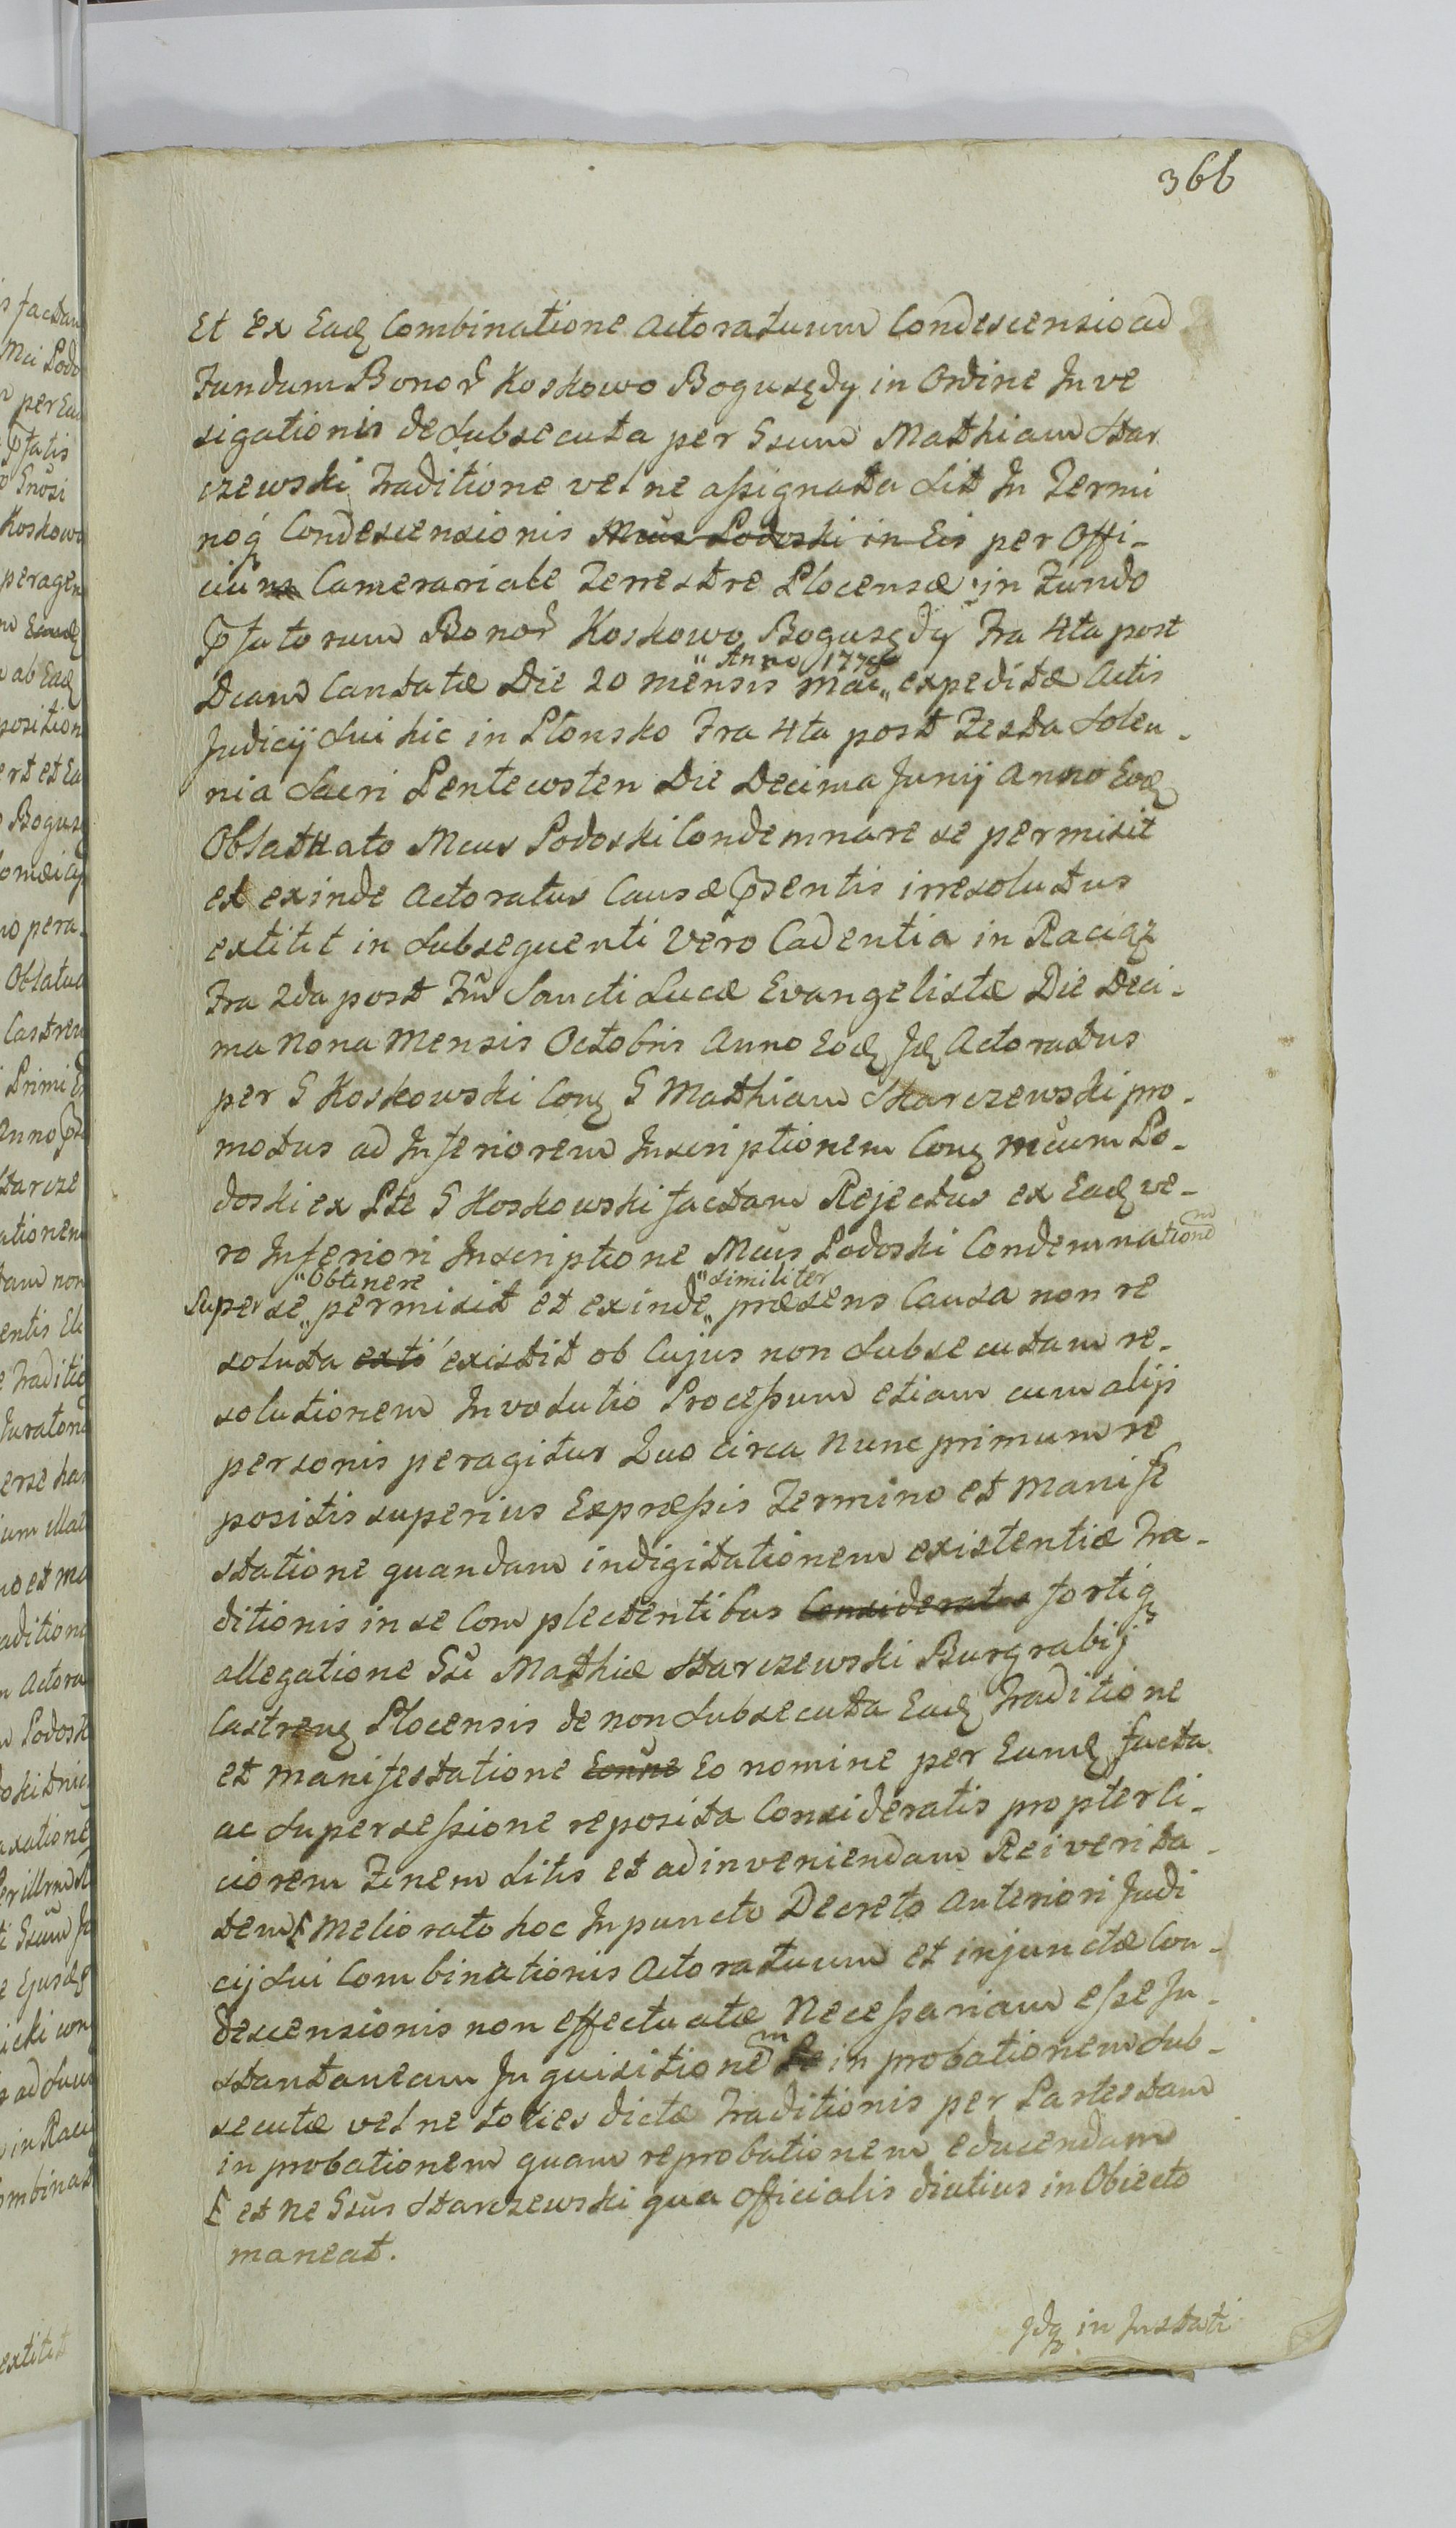 366
Et Ex Eadꝫ Combinatione actoratuum Condescensio ad
Fundum Bonoꝝ Koskowo Bogusędy in Ordine Inve
sigationis de Subsecuta per Gsum Mathiam Star
czewski Traditione vel ne assignata Sit In Termi
noq́ Condescensionis Mcus Podoski in Eis per Offi-
cium Camerariale Terrestre Plocensæ in Fundo
Pfatorum Bonoꝝ Koskowo Bogusędy Fra 4ta post
Dcam Cantatæ Die 20 mensis Mai "Anno 1778" expeditæ Actis
Judicij Sui hic in Plonsko Fra 4ta post Festa Solen-
nia Sacri Pentecosten Die Decima Junij Anno Eodꝫ
Oblat ato Mcus Podoski Condemnare se permisit
et exinde actoratus Causæ Psentis irresolutus
extitit in Subsequenti Vero Cadentia in Raciąz
Fra 2da post Fm̃ Sancti Lucæ Evangelistæ Die Deci-
ma Nona Mensis Octobris Anno Eodꝫ Idꝫ Actoratus
per G Koskowski Conꝫ G Mathiam Starczewski pro-
motus ad Inferiorem Inscriptionem Conꝫ Mcum Po-
doski ex Pte G Koskowski factam Rejectus ex Eadꝫ ve-
ro Inferiori Inscriptione Mcus Podoski Condemnationem
Super se "Obtinere" permisit et exinde "similiter" præsens Causa non re
soluta exti existit ob Cujus non Subsecutam re-
solutionem Involutio Processum etiam cum alijs
personis peragitur Quo circa Nunc primum re
positis superius Expræssis Termino et Manife
statione quandam indigitationem existentiæ Tra-
ditionis in se Complectentibus Consideratis fortiq
allegatione Gsi Mathiæ Starczewski Burgrabij
Castrenꝫ Plocensis de non Subsecuta Eadꝫ Traditione
et Manifestatione Eo nomine per Eumdꝫ facta
ac Supersessione reposita Consideratis propter Ci-
ciorem Finem Litis et ad inveniendam Rei verita-
tem Meliorato hoc In puncto Decreto Anteriori Judi
cij Sui Combinationis Actoratuum et injunctæ Con-
descensionis non effectuatæ Necessariam esse In-
stantaneam Inquisitionem in probationem Sub-
secutæ vel ne toties dictæ Traditionis per Partes tam
in probationem quam reprobationem educendam
et ne Gsus Starczewski qua Officialis diutius in Obiecto
maneat.
in Instati